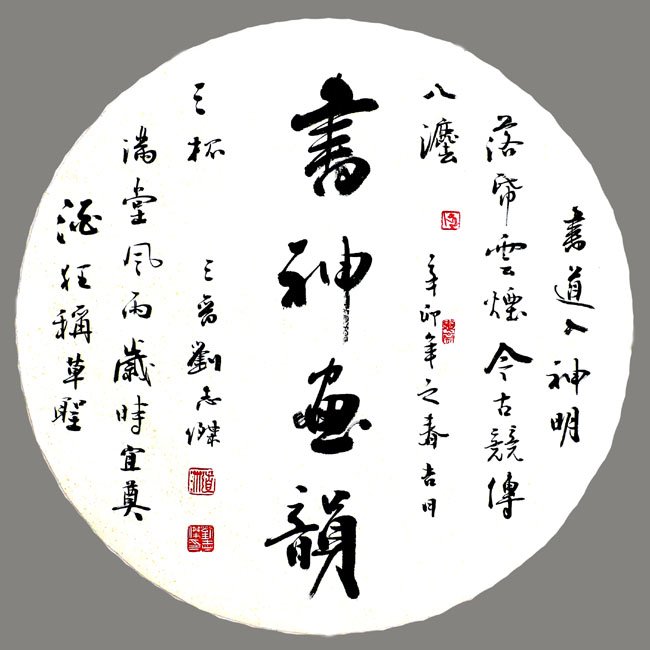 書神畫韻
書道入神明
落帋雲煙今古競傳
八灋
辛卯年之春吉日
酒狂稱草聖
滿堂風雨歲時宜奠
三杯
三晉劉志傑